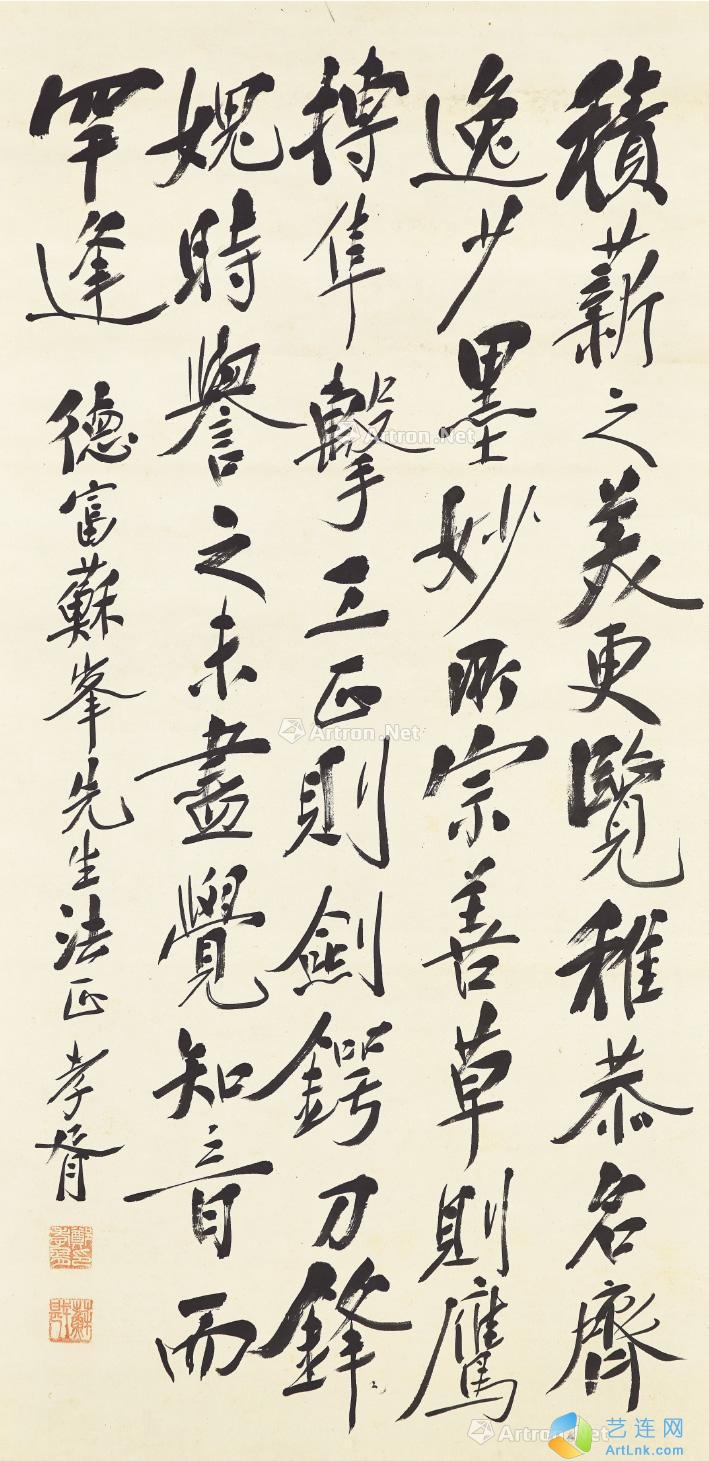 積薪之美更覽稚恭名齊
逸少墨妙所宗善草則鷹
搏隼擊工正則劍鍔刀鋒
媿時譽之未盡覺知音而
罕逢 德富蘇峯先生法正 孝胥
鄭印孝胥
蘇戡
Artron.Net
Artron.Net
Artron.Net
艺连网
ArtLnk.com